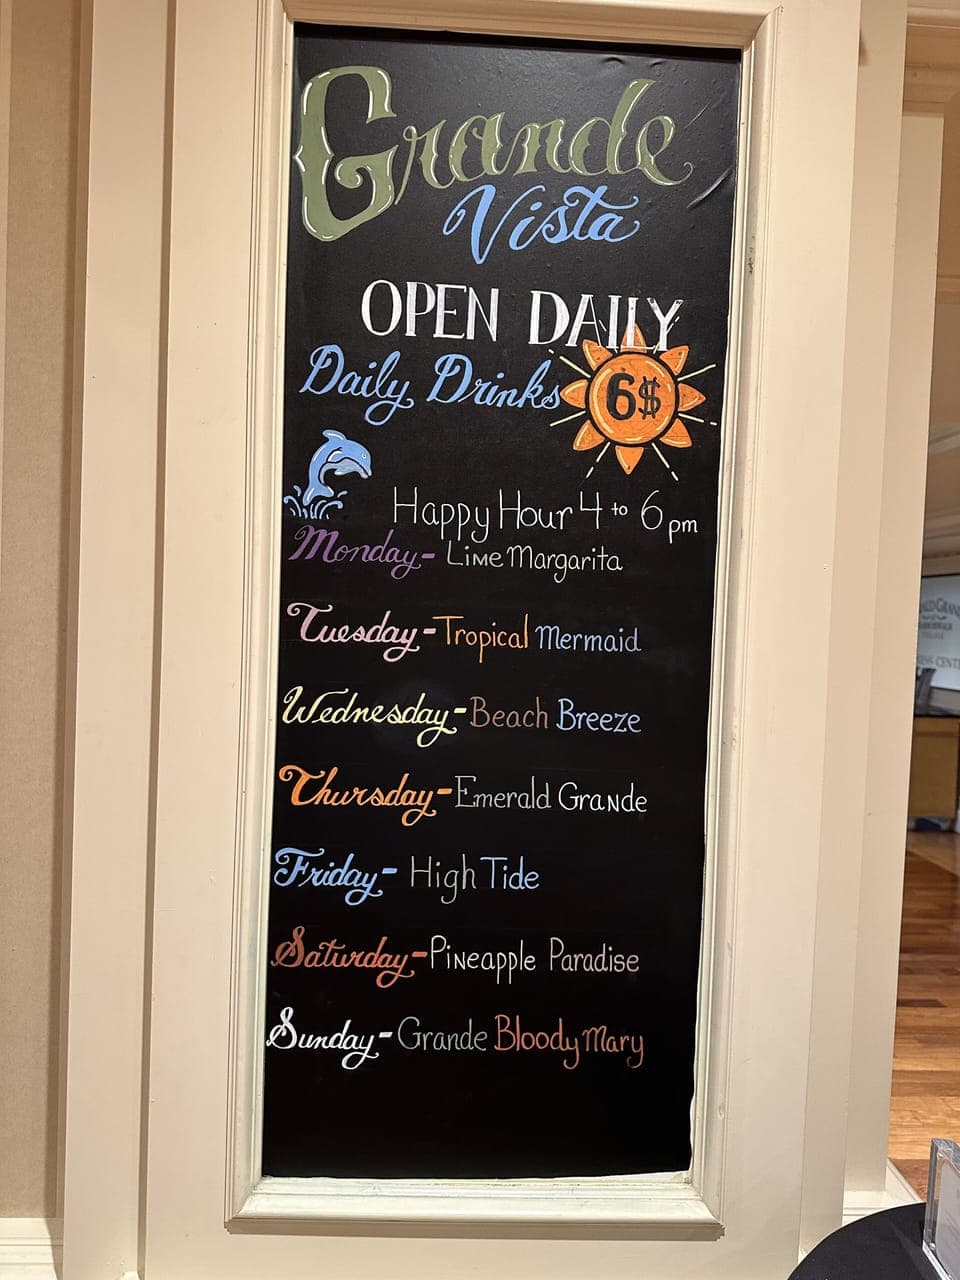 Grande
Vista
OPEN DAILY
Daily Drinks 6$
Happy Hour 4 to 6 pm
Monday- Lime Margarita
Tuesday- Tropical Mermaid
Wednesday- Beach Breeze
Thursday- Emerald Grande
Friday- High Tide
Saturday- Pineapple Paradise
Sunday- Grande Bloody Mary